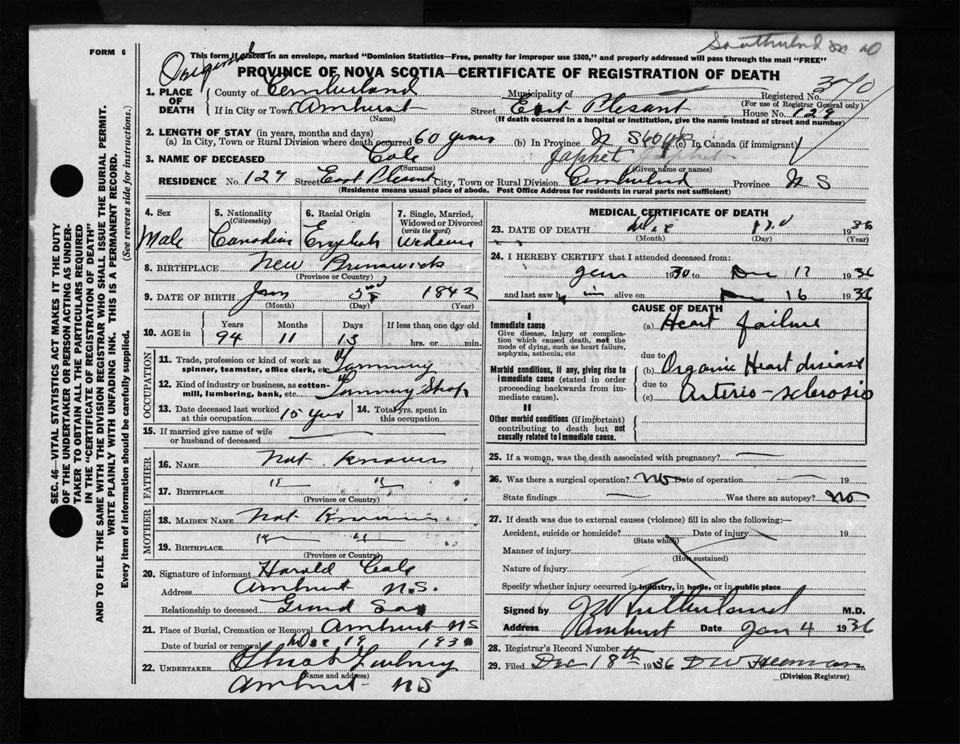 FORM 6
Southerland
This form if placed in an envelope, marked "Dominion Statistics—Free, penalty for improper use $300," and properly addressed will pass through the mail "FREE"
Original
PROVINCE OF NOVA SCOTIA—CERTIFICATE OF REGISTRATION OF DEATH
1. PLACE OF DEATH
County of Cumberland Municipality of Registered No. 3570
(For use of Registrar General only)
If in City or Town Amherst (Name) Street East Plesant House No. 129
(If death occurred in a hospital or institution, give the name instead of street and number)
2. LENGTH OF STAY (in years, months and days)
(a) In City, Town or Rural Division where death occurred 60 years (b) In Province N S 60 yrs (c) In Canada (if immigrant)
3. NAME OF DECEASED Cole (Surname) Japhet (Given name or names)
RESIDENCE No. 129 Street East Plesant City, Town or Rural Division Cumberland Province N S
(Residence means usual place of abode. Post Office Address for residents in rural parts not sufficient)
4. Sex Male
5. Nationality (Citizenship) Canadian
6. Racial Origin English
7. Single, Married, Widowed or Divorced (write the word)
8. BIRTHPLACE New Brunswick
(Province or Country)
9. DATE OF BIRTH Jan (Month) (Day) 1842 (Year)
10. AGE in Years 94 Months 11 Days 13 If less than one day old hrs. or min.
OCCUPATION
11. Trade, profession or kind of work as spinner, teamster, office clerk, etc.
12. Kind of industry or business, as cotton-mill, lumbering, bank, etc.
13. Date deceased last worked at this occupation 14. Total yrs. spent in this occupation
15. If married give name of wife or husband of deceased
FATHER
16. NAME Not Known
17. BIRTHPLACE " "
(Province or Country)
MOTHER
18. MAIDEN NAME Not Known
19. BIRTHPLACE " "
(Province or Country)
20. Signature of informant Harold Cole
Address Amherst N.S.
Relationship to deceased Grand Son
21. Place of Burial, Cremation or Removal Amherst NS
Date of burial or removal Dec 19 193
22. UNDERTAKER
(Name and address)
Amherst NS
MEDICAL CERTIFICATE OF DEATH
23. DATE OF DEATH (Month) (Day) 1936 (Year)
24. I HEREBY CERTIFY that I attended deceased from:
30 to Dec 17 1936
and last saw him alive on Dec 16 1936
CAUSE OF DEATH
I
Immediate cause
Give disease, injury or complication which caused death, not the mode of dying, such as heart failure, asphyxia, asthenia, etc
(a) Heart failure
due to
Morbid conditions, if any, giving rise to immediate cause (stated in order proceeding backwards from immediate cause).
(b) Organic Heart disease
due to
(c) Arterio-sclerosis
II
Other morbid conditions (if important) contributing to death but not causally related to immediate cause.
25. If a woman, was the death associated with pregnancy?
26. Was there a surgical operation? No Date of operation 19
State findings Was there an autopsy? No
27. If death was due to external causes (violence) fill in also the following:—
Accident, suicide or homicide? (State which) Date of injury 19
Manner of injury (How sustained)
Nature of injury
Specify whether injury occurred in industry, in home, or in public place
Signed by M.D.
Address Amherst Date Jan 4 1936
28. Registrar's Record Number
29. Filed Dec 18th 1936
(Division Registrar)
SEC. 46—VITAL STATISTICS ACT MAKES IT THE DUTY
OF THE UNDERTAKER OR PERSON ACTING AS UNDER-
TAKER TO OBTAIN ALL THE PARTICULARS REQUIRED
IN THE "CERTIFICATE OF REGISTRATION OF DEATH"
AND TO FILE THE SAME WITH THE DIVISION REGISTRAR WHO SHALL ISSUE THE BURIAL PERMIT.
WRITE PLAINLY WITH UNFADING INK. THIS IS A PERMANENT RECORD.
Every item of information should be carefully supplied. (See reverse side for instructions.)